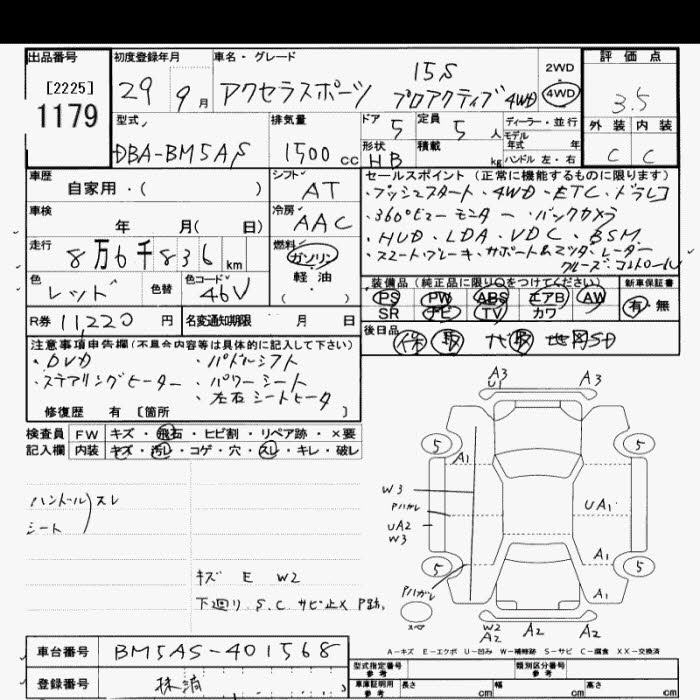 出品番号
[2225]
1179
初度登録年月
29 9月
車名・グレード
15S
アクセラスポーツ プロアクティブ 4WD
2WD
4WD
評価点
3.5
外装 内装
C C
型式
DBA-BM5AS
排気量
1500 cc
ドア
5
定員
5 人
形状
HB
積載
kg
ディーラー・並行
モデル
年式 年
ハンドル 左・右
車歴
自家用・( )
シフト
AT
車検
年 月( 日)
冷房
AAC
走行
8万6千836 km
燃料
ガソリン
軽油
( )
色
レッド
色替
色コード
46V
R券 11,220 円
名変通知期限 月 日
セールスポイント (正常に機能するものに限ります)
・プッシュスタート・4WD・ETC・ドラレコ
・360°ビューモニター・バックカメラ
・HUD・LDA・VDC・BSM
・スマートブレーキ・サポート&マツダ・レーダー
クルーズ・コントロール
装備品 (純正品に限り○をつけてください)
PS PW ABS エアB AW
SR ナビ TV カワ
新車保証書
有・無
後日品
保 取 ナビ取 地図SD
注意事項申告欄(不具合内容等は具体的に記入して下さい)
・DVD ・パドルシフト
・ステアリングヒーター ・パワーシート
・左右シートヒータ
修復歴 有 [箇所 ]
検査員 FW キズ・飛石・ヒビ割・リペア跡・×要
記入欄 内装 キズ・汚レ・コゲ・穴・スレ・キレ・破レ
ハンドル スレ
シート
キズ E W2
下廻り S.C サビ止メ P跡
A3
U1
A3
5 5
A1
W3
Pハガレ
UA2
W3
UA1
A1
5 5
Pハガレ
A1
スペア
W2
A2
A2
A2
A-キズ E-エクボ U-凹み W-補修跡 S-サビ C-腐食 XX-交換済
車台番号 BM5AS-401568
登録番号 抹消
型式指定番号
参考
類別区分番号
参考
車庫証明用
参考
長さ cm
幅 cm
高さ cm